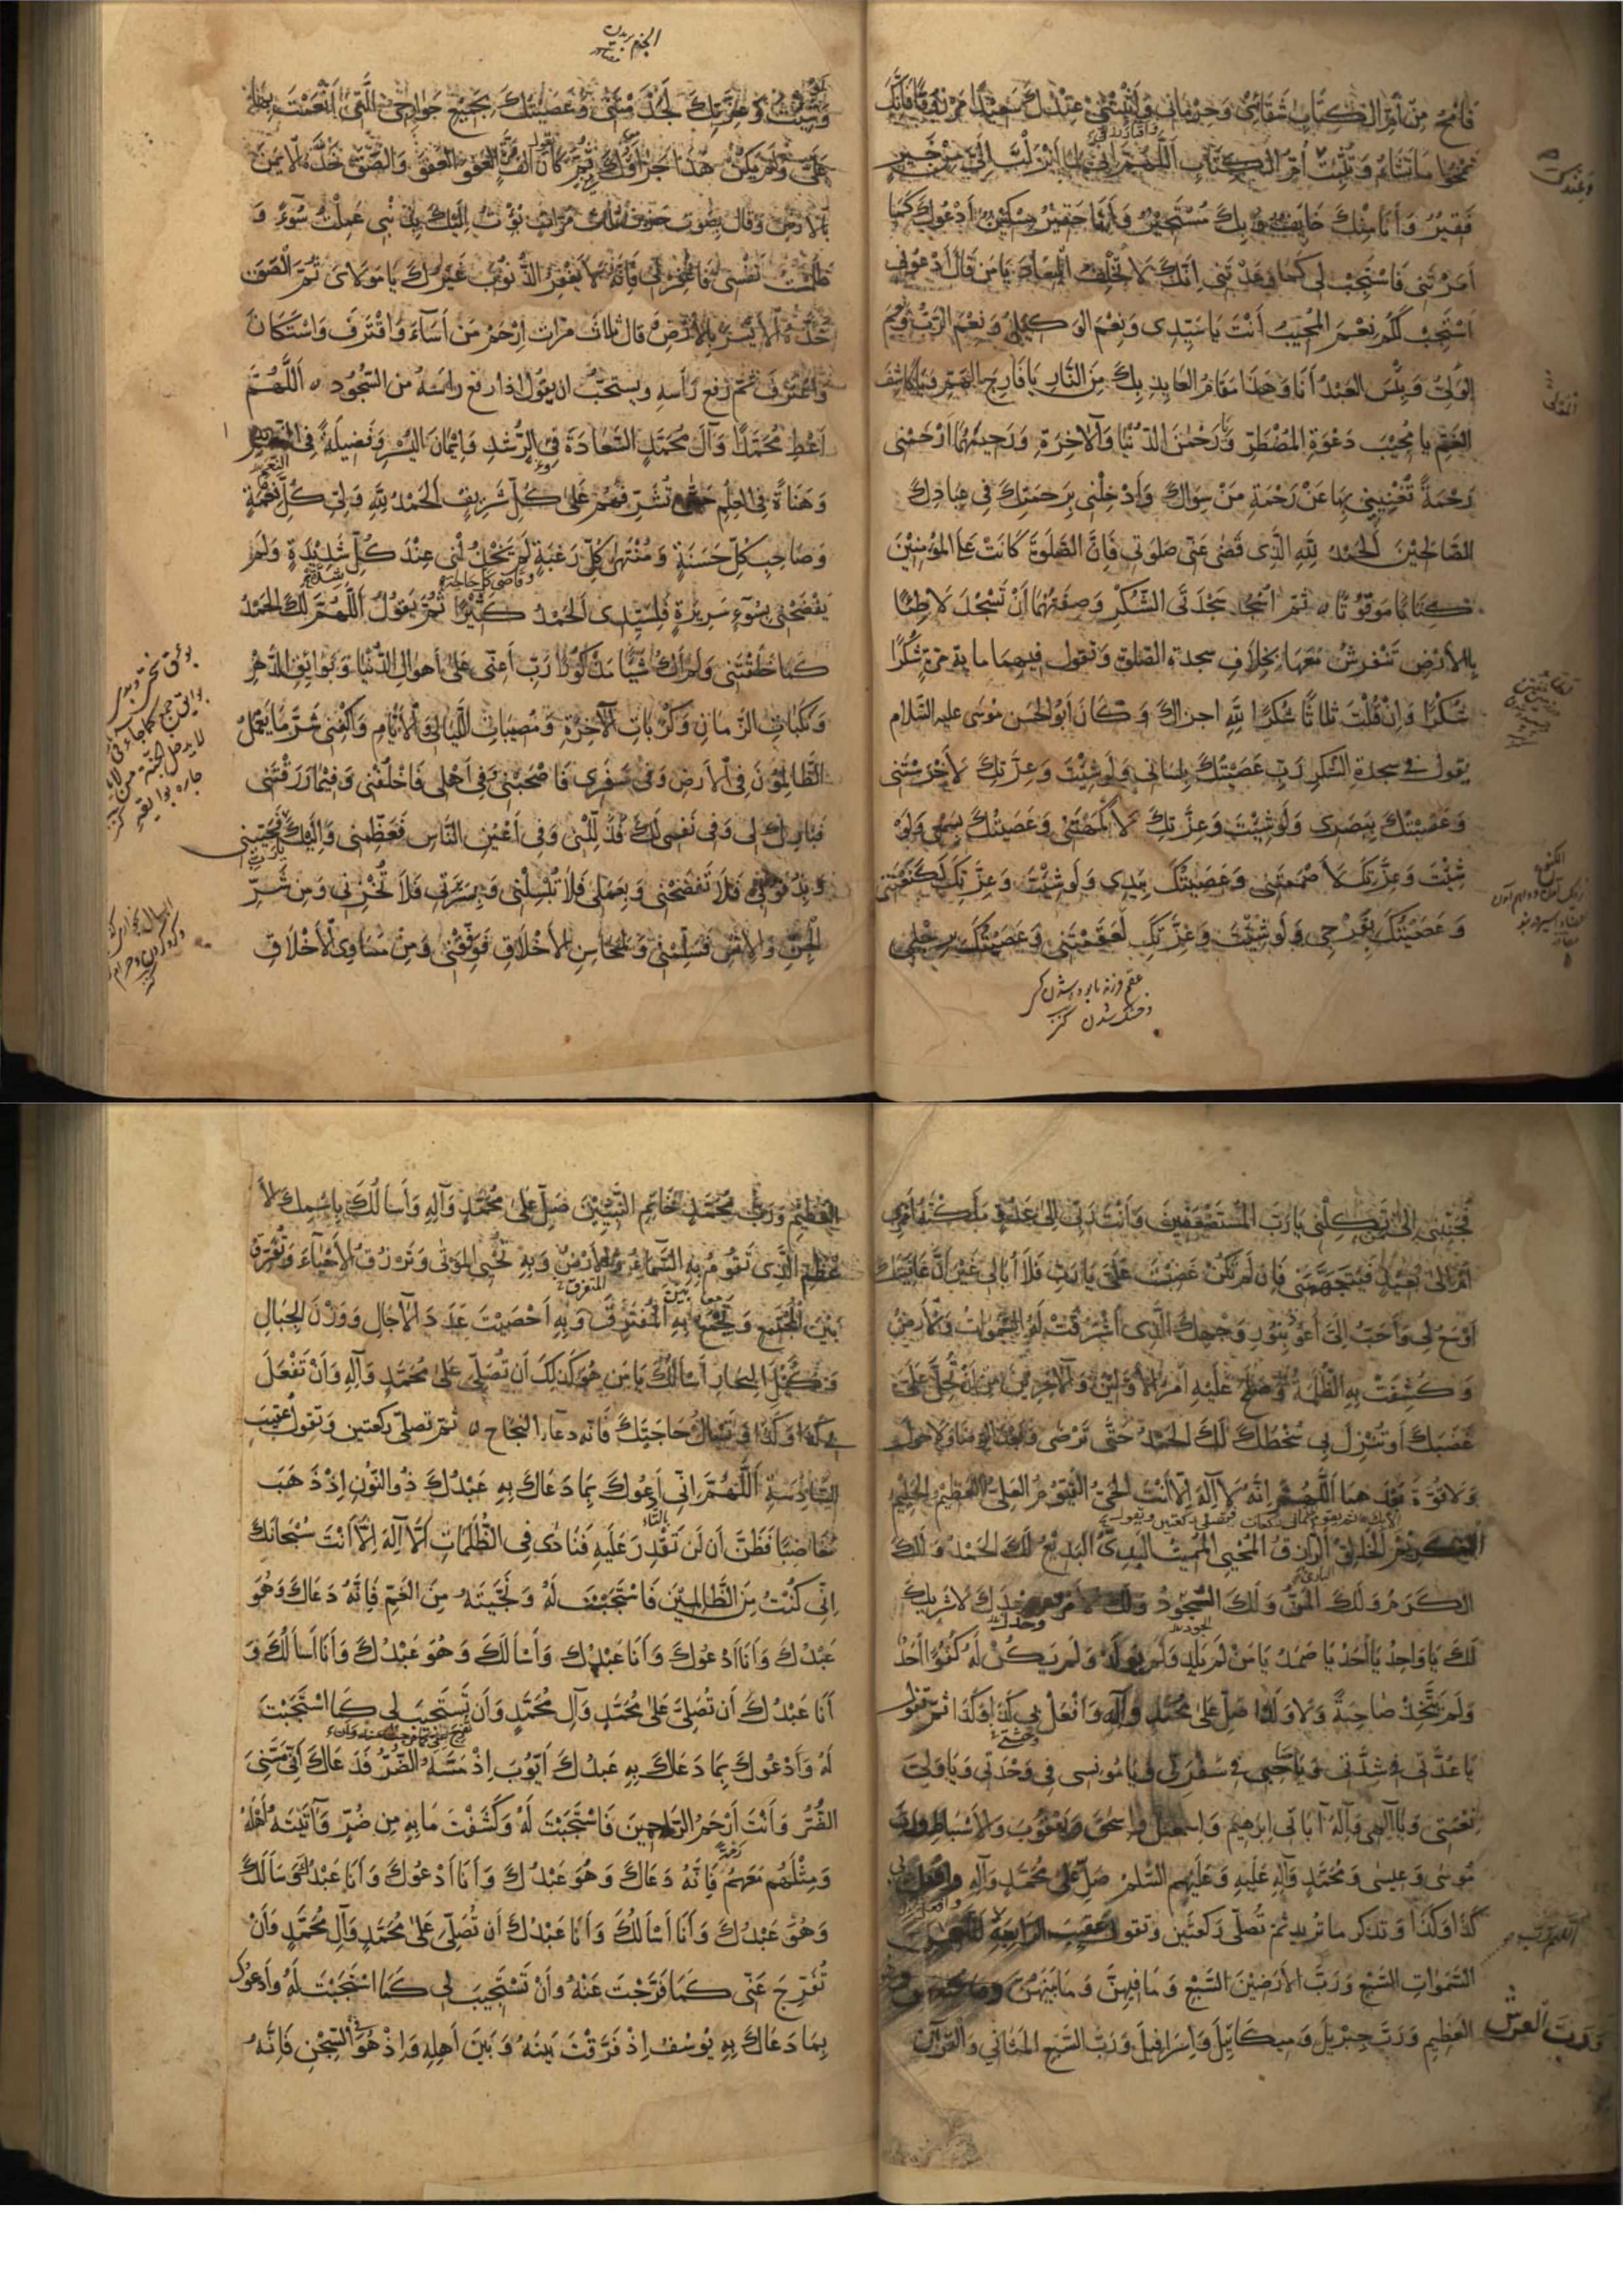 فَامْحُ مِنْ أُمِّ الْكِتَابِ شَقَائِي وَحِرْمَانِي وَأَثْبِتْنِي عِنْدَكَ سَعِيدًا مَرْزُوقًا فَإِنَّكَ
تَمْحُوا مَا تَشَاءُ وَتُثْبِتُ أُمَّ الْكِتَابِ اللَّهُمَّ إِنِّي لِمَا أَنْزَلْتَ إِلَيَّ مِنْ خَيْرٍ
فَقِيرٌ وَأَنَا مِنْكَ خَائِفٌ وَبِكَ مُسْتَجِيرٌ وَأَنَا حَقِيرٌ مِسْكِينٌ أَدْعُوكَ كَمَا
أَمَرْتَنِي فَاسْتَجِبْ لِي كَمَا وَعَدْتَنِي إِنَّكَ لَا تُخْلِفُ الْمِيعَادَ يَا مَنْ قَالَ ادْعُونِي
أَسْتَجِبْ لَكُمْ نِعْمَ الْمُجِيبُ أَنْتَ يَا سَيِّدِي وَنِعْمَ الْوَكِيلُ وَنِعْمَ الرَّبُّ وَنِعْمَ
الْمَوْلَى وَبِئْسَ الْعَبْدُ أَنَا وَهَذَا مَقَامُ الْعَائِذِ بِكَ مِنَ النَّارِ يَا فَارِجَ الْهَمِّ وَيَا كَاشِفَ
الْغَمِّ يَا مُجِيبَ دَعْوَةِ الْمُضْطَرِّ وَيَا رَحْمٰنَ الدُّنْيَا وَالْآخِرَةِ وَرَحِيمَهُمَا ارْحَمْنِي
رَحْمَةً تُغْنِينِي بِهَا عَنْ رَحْمَةِ مَنْ سِوَاكَ وَأَدْخِلْنِي بِرَحْمَتِكَ فِي عِبَادِكَ
الصَّالِحِينَ الْحَمْدُ لِلّٰهِ الَّذِي قَضَى عَنِّي صَلٰوتِي فَإِنَّ الصَّلٰوةَ كَانَتْ عَلَى الْمُؤْمِنِينَ
كِتَابًا مَوْقُوتًا ثُمَّ اسْجُدْ سَجْدَتَيِ الشُّكْرِ وَصِفَتُهُمَا أَنْ تَسْجُدَ لَاطِئًا
بِالْأَرْضِ تَفْرِشُ مَعَهَا بِخِلَافِ سجدة الصلوة وَتقول فِيهِمَا ما يقرء مرة شُكْرًا
شُكْرًا وَإِنْ قُلْتَ ثَلَاثًا شُكْرًا لِلّٰهِ اجزاك وَكَانَ أَبُو الْحَسَن مُوسَى عليه السَّلَام
يقول في سجدة الشكر رَبِّ عَصَيْتُكَ بِلِسَانِي وَلَوْ شِئْتَ وَعِزَّتِكَ لَأَخْرَسْتَنِي
وَعَصَيْتُكَ بِبَصَرِي وَلَوْ شِئْتَ وَعِزَّتِكَ لَأَكْمَهْتَنِي وَعَصَيْتُكَ بِسَمْعِي وَلَوْ
شِئْتَ وَعِزَّتِكَ لَأَصْمَمْتَنِي وَعَصَيْتُكَ بِيَدِي وَلَوْ شِئْتَ وَعِزَّتِكَ لَكَنَّعْتَنِي
وَعَصَيْتُكَ بِفَرْجِي وَلَوْ شِئْتَ وَعِزَّتِكَ لَعَقَمْتَنِي وَعَصَيْتُكَ بِرِجْلِي
وَلَوْ شِئْتَ وَعِزَّتِكَ لَجَذَمْتَنِي وَعَصَيْتُكَ بِجَمِيعِ جَوَارِحِي الَّتِي أَنْعَمْتَ بِهَا
عَلَيَّ وَلَمْ يَكُنْ هٰذَا جَزَاؤُكَ ثُمَّ كَانَ أَلْفَ الْعَفْوَ الْعَفْوَ وَأَلْصَقَ خَدَّهُ الْأَيْمَنَ
بِالْأَرْضِ وَقَالَ بِصَوْتٍ حَزِينٍ ثَلَاث مَرَّاتٍ بُؤْتُ إِلَيْكَ بِذَنْبِي عَمِلْتُ سُوءً وَ
ظَلَمْتُ نَفْسِي فَاغْفِرْ لِي فَإِنَّهُ لَا يَغْفِرُ الذُّنُوبَ غَيْرُكَ يَا مَوْلَايَ ثُمَّ أَلْصَقَ
خَدَّهُ الْأَيْسَرَ بِالْأَرْضِ قَالَ ثلاثَ مرّاتٍ ارْحَمْ مَنْ أَسَآءَ وَاقْتَرَفَ وَاسْتَكَانَ
وَاعْتَرَفَ ثُمَّ رَفَعَ رَأْسَهُ وَيستحبّ ان يَقُول اذا رفع راسَهُ من السُّجُودِ اَللّٰهُمَّ
أَعْطِ مُحَمَّدًا وَآلَ مُحَمَّدٍ السَّعَادَةَ فِي الرُّشْدِ وَإِيمَانَ الْيُسْرِ وَفَضِيلَةً فِي النِّعَمِ
وَهَنَاءَةً فِي الْعِلْمِ حَتَّى تُشَرِّفَهُمْ عَلَى كُلِّ شَرِيفٍ الْحَمْدُ لِلّٰهِ وَلِيِّ كُلِّ نِعْمَةٍ
وَصَاحِبِ كُلِّ حَسَنَةٍ وَمُنْتَهَى كُلِّ رَغْبَةٍ لَمْ يَخْذُلْنِي عِنْدَ كُلِّ شَدِيدَةٍ وَلَمْ
يَفْضَحْنِي بِسُوءِ سَرِيرَةٍ فَلِسَيِّدِي الْحَمْدُ كَثِيرًا ثُمَّ يَقُولُ اللّٰهُمَّ لَكَ الْحَمْدُ
كَمَا خَلَقْتَنِي وَلَمْ أَكُ شَيْئًا مَذْكُورًا رَبِّ أَعِنِّي عَلَى أَهْوَالِ الدُّنْيَا وَبَوَائِقِ الدَّهْرِ
وَنَكَبَاتِ الزَّمَانِ وَكُرُبَاتِ الْآخِرَةِ وَمُصِيبَاتِ اللَّيَالِي وَالْأَيَّامِ وَاكْفِنِي شَرَّ مَا يَعْمَلُ
الظَّالِمُونَ فِي الْأَرْضِ وَفِي سَفَرِي فَاصْحَبْنِي وَفِي أَهْلِي فَاخْلُفْنِي وَفِيمَا رَزَقْتَنِي
فَبَارِكْ لِي وَفِي نَفْسِي لَكَ فَذَلِّلْنِي وَفِي أَعْيُنِ النَّاسِ فَعَظِّمْنِي وَإِلَيْكَ فَحَبِّبْنِي
وَبِذُنُوبِي فَلَا تَفْضَحْنِي وَبِعَمَلِي فَلَا تُبْسِلْنِي وَبِسَرِيرَتِي فَلَا تُخْزِنِي وَمِنْ شَرِّ
الْجِنِّ وَالْإِنْسِ فَسَلِّمْنِي وَلِمَحَاسِنِ الْأَخْلَاقِ فَوَفِّقْنِي وَمِنْ مَسَاوِئِ الْأَخْلَاقِ
فَجَنِّبْنِي إِلَى مَنْ تَكِلُنِي يَا رَبَّ الْمُسْتَضْعَفِينَ وَأَنْتَ رَبِّي إِلَى عَدُوٍّ مَلَّكْتَهُ أَمْرِي
أَمْ إِلَى بَعِيدٍ فَيَتَجَهَّمَنِي فَإِنْ لَمْ تَكُنْ غَضِبْتَ عَلَيَّ يَا رَبِّ فَلَا أُبَالِي غَيْرَ أَنَّ عَافِيَتَكَ
أَوْسَعُ لِي وَأَحَبُّ إِلَيَّ أَعُوذُ بِنُورِ وَجْهِكَ الَّذِي أَشْرَقَتْ لَهُ السَّمٰوَاتُ وَالْأَرْضُ
وَكُشِفَتْ بِهِ الظُّلْمَةُ وَصَلَحَ عَلَيْهِ أَمْرُ الْأَوَّلِينَ وَالْآخِرِينَ مِنْ أَنْ تُحِلَّ عَلَيَّ
غَضَبَكَ أَوْ تُنْزِلَ بِي سَخَطَكَ لَكَ الْحَمْدُ حَتَّى تَرْضَى وَلَا حَوْلَ
وَلَا قُوَّةَ اللّٰهُمَّ إِنَّهُ لَا إِلٰهَ إِلَّا أَنْتَ الْحَيُّ الْقَيُّومُ الْعَلِيُّ الْعَظِيمُ الْحَلِيمُ
الْكَرِيمُ الْخَالِقُ الرَّازِقُ الْمُحْيِي الْمُمِيتُ الْبَدِيءُ الْبَدِيعُ لَكَ الْحَمْدُ وَلَكَ
الْكَرَمُ وَلَكَ الْمَنُّ وَلَكَ الْجُودُ وَلَكَ الْأَمْرُ وَحْدَكَ لَا شَرِيكَ
لَكَ يَا وَاحِدُ يَا أَحَدُ يَا صَمَدُ يَا مَنْ لَمْ يَلِدْ وَلَمْ يُولَدْ وَلَمْ يَكُنْ لَهُ كُفُوًا أَحَدٌ
وَلَمْ يَتَّخِذْ صَاحِبَةً وَلَا وَلَدًا صَلِّ عَلَى مُحَمَّدٍ وَآلِهِ وَافْعَلْ بِي كَذَا وَكَذَا ثُمَّ تقول
يَا عُدَّتِي فِي شِدَّتِي وَيَا صَاحِبِي فِي سَفَرِي وَيَا مُونِسِي فِي وَحْدَتِي وَيَا وَلِيِّي
نِعْمَتِي وَيَا إِلٰهِي وَإِلٰهَ آبَائِي إِبْرٰهِيمَ وَإِسْمٰعِيلَ وَإِسْحٰقَ وَيَعْقُوبَ وَالْأَسْبَاطِ وَرَبَّ
مُوسَى وَعِيسَى وَمُحَمَّدٍ وَآلِهِ عَلَيْهِ وَعَلَيْهِمُ السَّلٰمُ صَلِّ عَلَى مُحَمَّدٍ وَآلِهِ وَافْعَلْ بِي
كَذَا وَكَذَا وَتذكر ما تريد ثُمَّ تُصَلِّي رَكْعَتَيْنِ وَتقول عَقِيبَ الرَّابِعَةِ
السَّمٰوَاتِ السَّبْعِ وَرَبَّ الْأَرَضِينَ السَّبْعِ وَمَا فِيهِنَّ وَمَا بَيْنَهُنَّ
وَرَبَّ الْعَرْشِ الْعَظِيمِ وَرَبَّ جِبْرِيلَ وَمِيكَائِيلَ وَإِسْرَافِيلَ وَرَبَّ السَّبْعِ الْمَثَانِي وَالْقُرْآنِ
الْعَظِيمِ وَرَبَّ مُحَمَّدٍ خَاتَمِ النَّبِيِّينَ صَلِّ عَلَى مُحَمَّدٍ وَآلِهِ وَأَسْأَلُكَ بِاسْمِكَ الْأَ
عْظَمِ الَّذِي تَقُومُ بِهِ السَّمَاءُ وَالْأَرْضُ وَبِهِ تُحْيِي الْمَوْتَى وَتَرْزُقُ الْأَحْيَاءَ وَتُفَرِّقُ
بَيْنَ الْجَمْعِ وَتَجْمَعُ بِهِ الْمُفْتَرِقَ وَبِهِ أَحْصَيْتَ عَدَدَ الْآجَالِ وَوَزْنَ الْجِبَالِ
وَكَيْلَ الْبِحَارِ أَسْأَلُكَ يَا مَنْ هُوَ كَذَلِكَ أَنْ تُصَلِّيَ عَلَى مُحَمَّدٍ وَآلِهِ وَأَنْ تَفْعَلَ
بِي كَذَا وَكَذَا وَتَسْأَلُ حَاجَتَكَ فَانّه دعاء النجاح ثُمَّ تصلّي ركعتين وَتقول عَقِيبَ
السَّادِسَةِ اَللّٰهُمَّ إِنِّي أَدْعُوكَ بِمَا دَعَاكَ بِهِ عَبْدُكَ ذُو النُّونِ إِذْ ذَهَبَ
مُغَاضِبًا فَظَنَّ أَنْ لَنْ نَقْدِرَ عَلَيْهِ فَنَادَى فِي الظُّلُمَاتِ أَنْ لَا إِلٰهَ إِلَّا أَنْتَ سُبْحَانَكَ
إِنِّي كُنْتُ مِنَ الظَّالِمِينَ فَاسْتَجَبْتَ لَهُ وَنَجَّيْتَهُ مِنَ الْغَمِّ فَإِنَّهُ دَعَاكَ وَهُوَ
عَبْدُكَ وَأَنَا أَدْعُوكَ وَأَنَا عَبْدُكَ وَسَأَلَكَ وَهُوَ عَبْدُكَ وَأَنَا أَسْأَلُكَ وَ
أَنَا عَبْدُكَ أَنْ تُصَلِّيَ عَلَى مُحَمَّدٍ وَآلِ مُحَمَّدٍ وَأَنْ تَسْتَجِيبَ لِي كَمَا اسْتَجَبْتَ
لَهُ وَأَدْعُوكَ بِمَا دَعَاكَ بِهِ عَبْدُكَ أَيُّوبَ إِذْ مَسَّهُ الضُّرُّ فَدَعَاكَ أَنِّي مَسَّنِيَ
الضُّرُّ وَأَنْتَ أَرْحَمُ الرَّاحِمِينَ فَاسْتَجَبْتَ لَهُ وَكَشَفْتَ مَا بِهِ مِنْ ضُرٍّ وَآتَيْتَهُ أَهْلَهُ
وَمِثْلَهُمْ مَعَهُمْ فَإِنَّهُ دَعَاكَ وَهُوَ عَبْدُكَ وَأَنَا أَدْعُوكَ وَأَنَا عَبْدُكَ وَسَأَلَكَ
وَهُوَ عَبْدُكَ وَأَنَا أَسْأَلُكَ وَأَنَا عَبْدُكَ أَنْ تُصَلِّيَ عَلَى مُحَمَّدٍ وَآلِ مُحَمَّدٍ وَأَنْ
تُفَرِّجَ عَنِّي كَمَا فَرَّجْتَ عَنْهُ وَأَنْ تَسْتَجِيبَ لِي كَمَا اسْتَجَبْتَ لَهُ وَأَدْعُوكَ
بِمَا دَعَاكَ بِهِ يُوسُفُ إِذْ فَرَّقْتَ بَيْنَهُ وَبَيْنَ أَهْلِهِ وَإِذْ هُوَ فِي السِّجْنِ فَإِنَّهُ